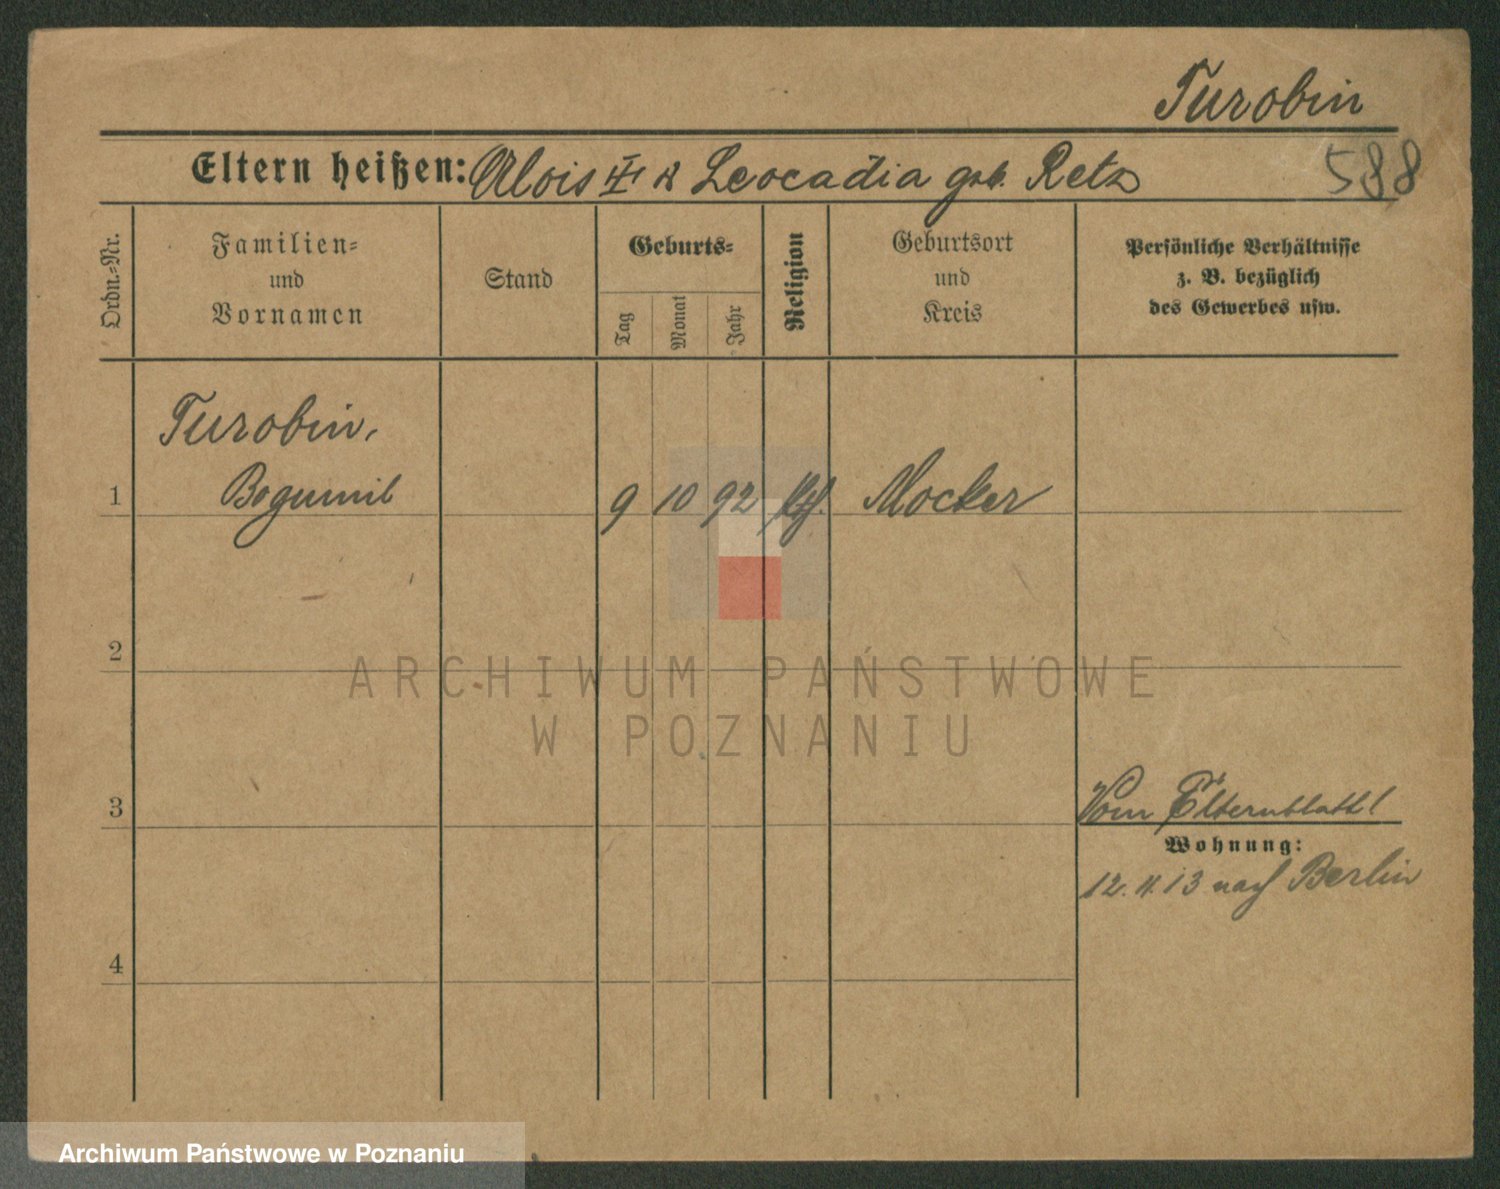 Turobin
Eltern heißen: Alois & Leocadia geb. Retz
588
Ordn.-Nr.
Familien-
und
Vornamen
Stand
Geburts-
Tag
Monat
Jahr
Religion
Geburtsort
und
Kreis
Persönliche Verhältnisse
z. B. bezüglich
des Gewerbes usw.
Turobin,
1 Bogumil 9 10 92 Mocker
2
3
4
Vom Elternblatt!
Wohnung:
12.4.13 nach Berlin
ARCHIWUM PAŃSTWOWE
W POZNANIU
Archiwum Państwowe w Poznaniu